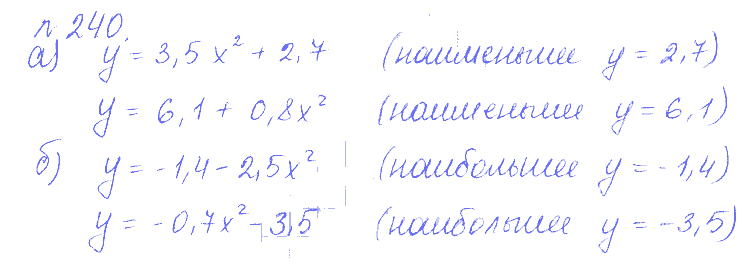 п. 240.
а) y = 3,5x² + 2,7 (наименьшее y = 2,7)
y = 6,1 + 0,8x² (наименьшее y = 6,1)
б) y = -1,4 - 2,5x² (наибольшее y = -1,4)
y = -0,7x² - 3,5 (наибольшее y = -3,5)